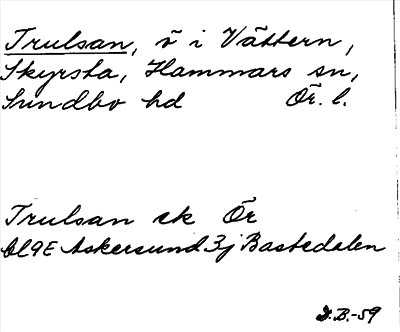 Trulsan, ö i Vättern,
Skyrsta, Hammars sn,
Sundbo hd Ör. l.
Trulsan ek Ör
bl9E Askersund 3j Bastedalen
S.B.-59